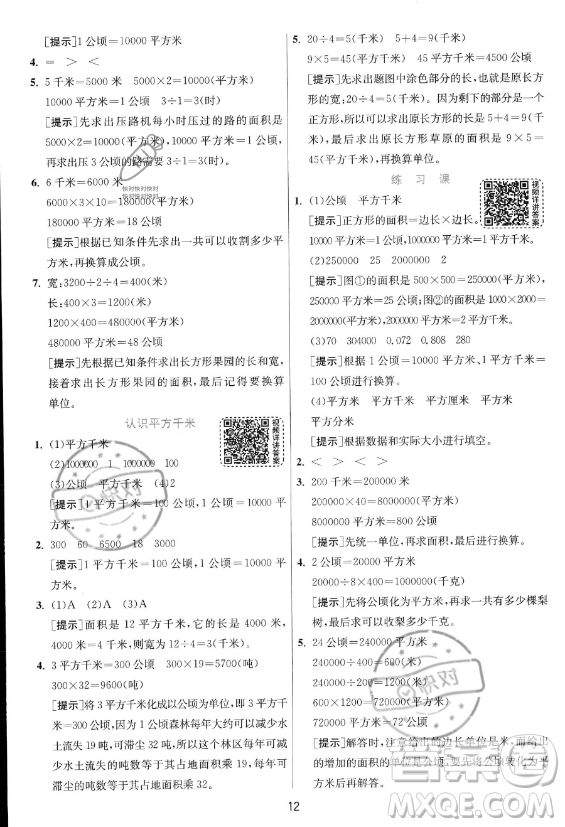 [提示]1公顷=10000平方米
4. = > <
5. 5千米=5000米 5000×2=10000(平方米)
10000平方米=1公顷 3÷1=3(时)
[提示]先求出压路机每小时压过的路的面积
5000×2=10000(平方米),10000平方米=1公顷,
再求出压3公顷的路需要3÷1=3(时)。
6. 6千米=6000米
6000×3×10=180000(平方米)
180000平方米=18公顷
[提示]根据已知条件先求出一共可以收割多少平
方米,再换算成公顷。
7. 宽:3200÷2÷4=400(米)
长:400×3=1200(米)
1200×400=480000(平方米)
480000平方米=48公顷
[提示]先根据已知条件求出长方形果园的长和宽,
接着求出长方形果园的面积,最后记得要换算
单位。
认识平方千米
视频详讲答案
1. (1)平方千米
(2)1000000 1 1000000 100
(3)公顷 平方千米 (4)2
[提示]1平方千米=100公顷,1公顷=10000平
方米。
2. 300 60 6500 18 3000
[提示]1平方千米=100公顷=1000000平方
米。
3. (1)A (2)A (3)A
[提示]面积是12平方千米,它的长是4000米,
4000米=4千米,则宽为12÷4=3(千米)。
4. 3平方千米=300公顷 300×19=5700(吨)
300×32=9600(吨)
[提示]将3平方千米化成以公顷为单位,即3平方千
米=300公顷,因为1公顷森林每年大约可以减少水
土流失19吨,可滞尘32吨,所以这个林区每年可减
少水土流失的吨数等于其占地面积乘19,每年可
滞尘的吨数等于其占地面积乘32。
5. 20÷4=5(千米) 5+4=9(千米)
9×5=45(平方千米) 45平方千米=4500公顷
[提示]先求出题图中涂色部分的长,也就是长方
形的宽:20÷4=5(千米)。因为剩下的部分是一个
正方形,所以可以求出原长方形的长是5+4=9(千
米),最后求出原长方形草原的面积是9×5=
45(平方千米),再换算单位。
练习课
视频详讲答案
1. (1)公顷 平方千米
[提示]正方形的面积=边长×边长,
100公顷=1平方千米。
(2)250000 25 2000000 2
[提示]图①的面积是500×500=250000(平方米),
250000平方米=25公顷;图②的面积是1000×2000=
2000000(平方米),2000000平方米=2平方千米。
(3)70 304000 0.072 0.808 280
[提示]根据1公顷=10000平方米、1平方千米=
100公顷进行换算。
(4)平方米 平方千米 平方厘米 平方千米
平方分米
[提示]根据数据和实际大小进行填空。
2. = > < >
3. 200千米=200000米
200000×40=8000000(平方米)
8000000平方米=800公顷
[提示]先统一单位,再求面积,最后进行换算。
4. 2公顷=20000平方米
20000÷8×400=1000000(千克)
[提示]先将公顷化为平方米,再求一共有多少棵梨
树,最后求收梨多少千克。
5. 24公顷=240000平方米
240000÷400=600(米)
600×1200=720000(平方米)
720000平方米=72公顷
[提示]解答时,注意给出的边长单位是米,而给出
的增加的面积单位是公顷,要先将公顷转化为平方
米后再解答。
快对快对快对
快对快对快对
快对
快对
答案圈
MXQE.COM
12